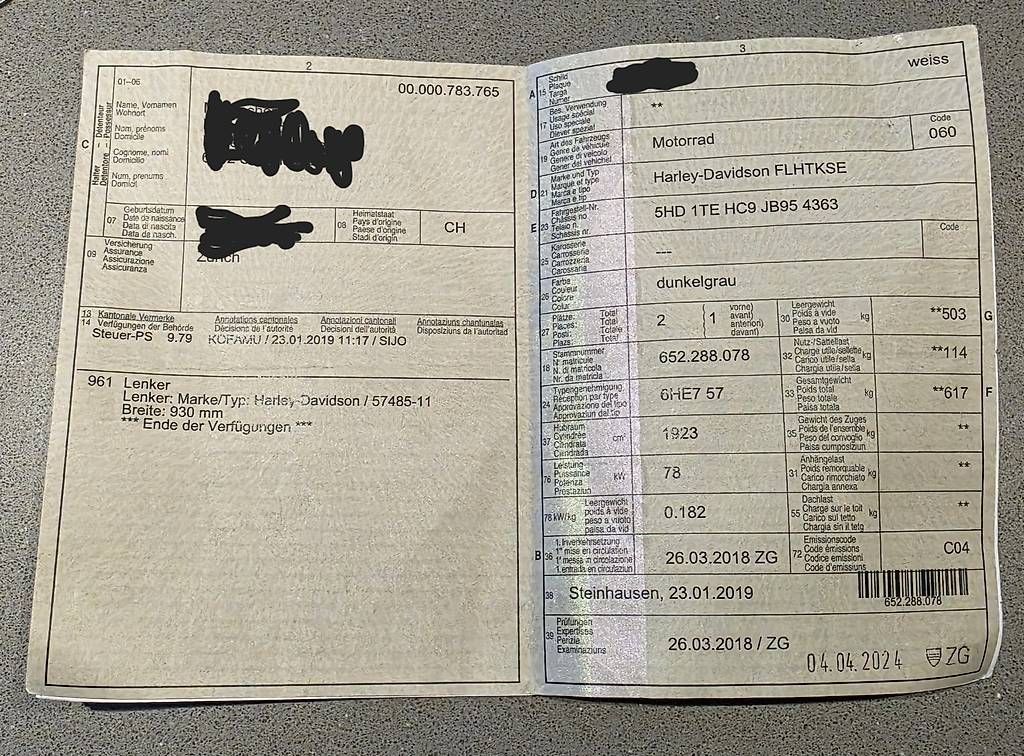 2
C
Halter
Détenteur
Detentore
Possessur
01–06
00.000.783.765
Name, Vornamen
Wohnort
Nom, prénoms
Domicile
Cognome, nomi
Domicilio
Num, prenums
Domicil
07
Geburtsdatum
Date de naissance
Data di nascita
Data da nasch.
08
Heimatstaat
Pays d'origine
Paese d'origine
Stadi d'origin
CH
09
Versicherung
Assurance
Assicurazione
Assicuranza
Zürich
13
14
Kantonale Vermerke
Verfügungen der Behörde
Annotations cantonales
Décisions de l'autorité
Annotazioni cantonali
Decisioni dell'autorità
Annotaziuns chantunalas
Disposiziuns da l'autoritad
Steuer-PS 9.79 KOFAMU / 23.01.2019 11:17 / SIJO
961 Lenker
Lenker: Marke/Typ: Harley-Davidson / 57485-11
Breite: 930 mm
*** Ende der Verfügungen ***
3
A
15
Schild
Plaque
Targa
Numer
weiss
17
Bes. Verwendung
Usage spécial
Uso speciale
Diever spezial
**
19
Art des Fahrzeugs
Genre de véhicule
Genere di veicolo
Gener dal vehichel
Motorrad
Code
060
D
21
Marke und Typ
Marque et type
Marca e tipo
Marca e tip
Harley-Davidson FLHTKSE
E
23
Fahrgestell-Nr.
Châssis no
Telaio n.
Schassis nr.
5HD 1TE HC9 JB95 4363
25
Karosserie
Carrosserie
Carrozzeria
Carossaria
---
Code
26
Farbe
Couleur
Colore
Colur
dunkelgrau
27
Plätze: Total
Places: Total
Posti: Totale
Plazs: Total
2
( 1
vorne)
avant)
anteriori)
davant)
30
Leergewicht
Poids à vide
Peso a vuoto
Paisa da vid
kg
**503
G
18
Stammnummer
N° matricule
N. di matricola
Nr. da matricla
652.288.078
32
Nutz-/Sattellast
Charge utile/sellette
Carico utile/sella
Chargia utila/sella
kg
**114
24
Typengenehmigung
Réception par type
Approvazione del tipo
Approvaziun dal tip
6HE7 57
33
Gesamtgewicht
Poids total
Peso totale
Paisa totala
kg
**617
F
37
Hubraum
Cylindrée
Cilindrata
Cilindrada
cm³
1923
35
Gewicht des Zuges
Poids de l'ensemble
Peso del convoglio
Paisa cumposiziun
kg
**
76
Leistung
Puissance
Potenza
Prestaziun
kW
78
31
Anhängelast
Poids remorquable
Carico rimorchiato
Chargia annexa
kg
**
78 kW/kg
Leergewicht
poids à vide
peso a vuoto
paisa da vid
0.182
55
Dachlast
Charge sur le toit
Carico sul tetto
Chargia sin il tetg
kg
**
B
36
1. Inverkehrsetzung
1re mise en circulation
1a messa in circolazione
1. entrada en circulaziun
26.03.2018 ZG
72
Emissionscode
Code émissions
Codice emissioni
Code d'emissiuns
C04
38
Steinhausen, 23.01.2019
652.288.078
39
Prüfungen
Expertises
Perizie
Examinaziuns
26.03.2018 / ZG
04.04.2024 ZG